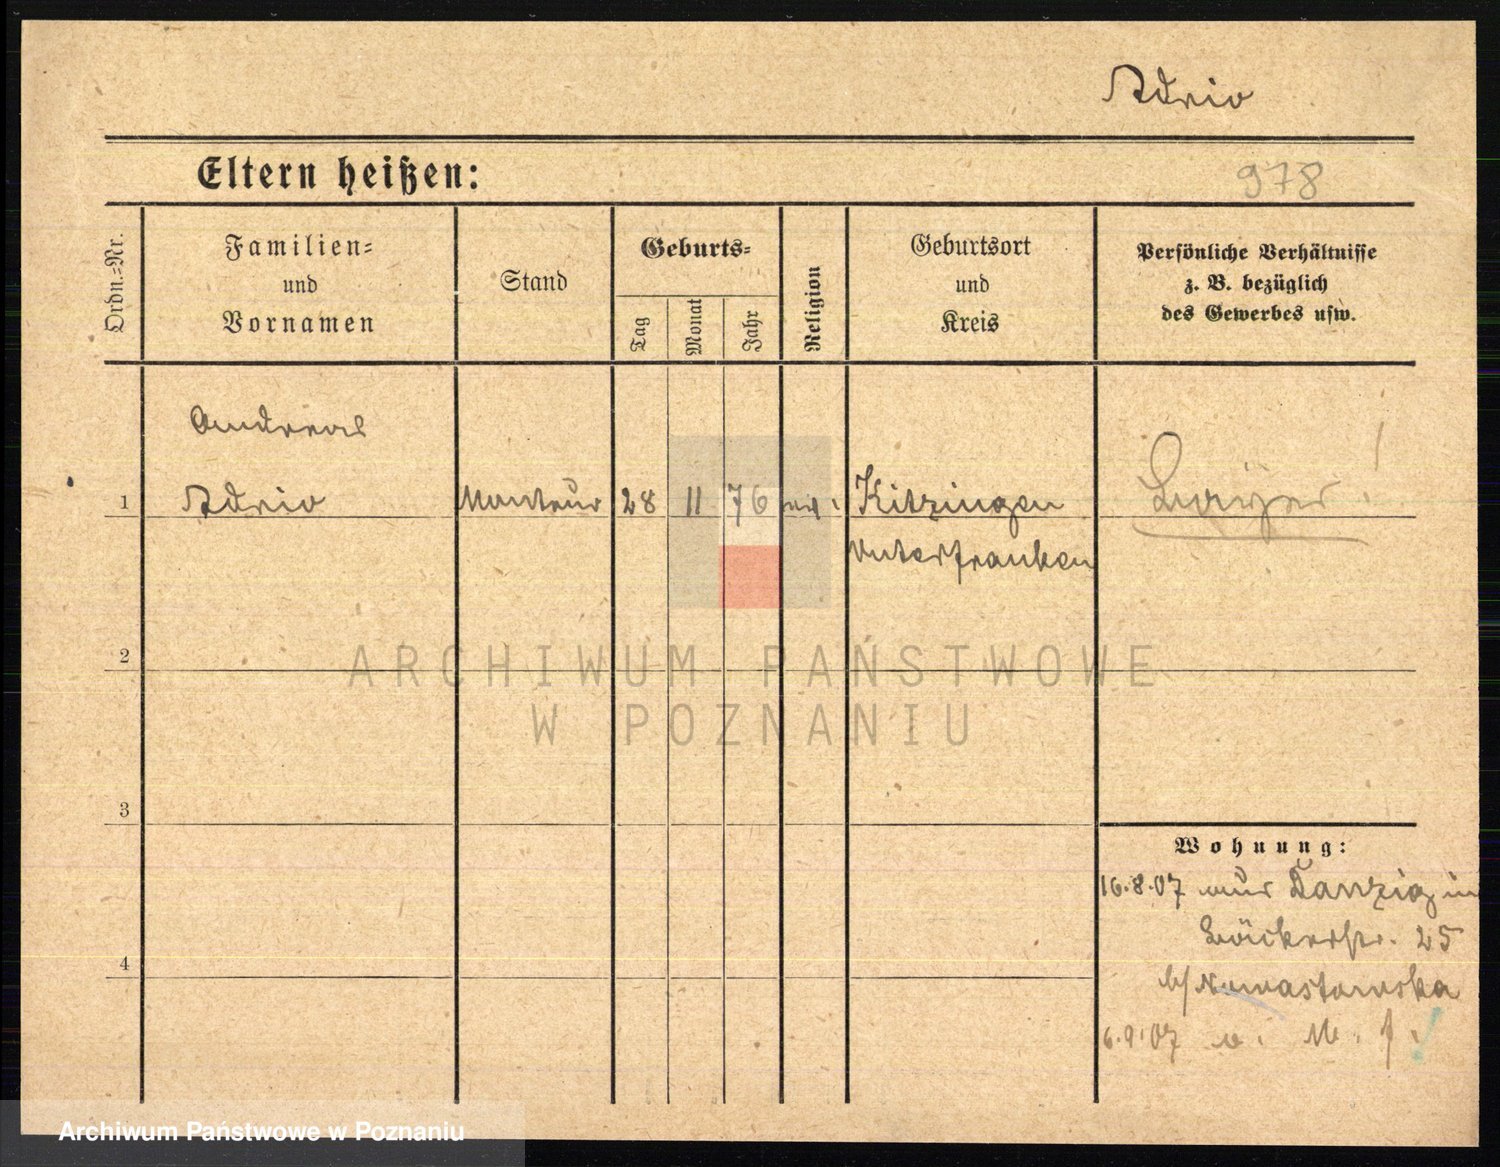 Adrio
Eltern heißen:
978
Ordn.-Nr.
Familien-
und
Vornamen
Stand
Geburts-
Tag
Monat
Jahr
Religion
Geburtsort
und
Kreis
Persönliche Verhältnisse
z. B. bezüglich
des Gewerbes usw.
Andreas
1 Adrio Monteur 28 11 76 Kitzingen
Unterfranken
2
3
4
ARCHIWUM PAŃSTWOWE
W POZNANIU
Wohnung:
16.8.07 Danzig in
Bäckerstr. 25
b/ Nowastowska
6.9.07 M.
Archiwum Państwowe w Poznaniu